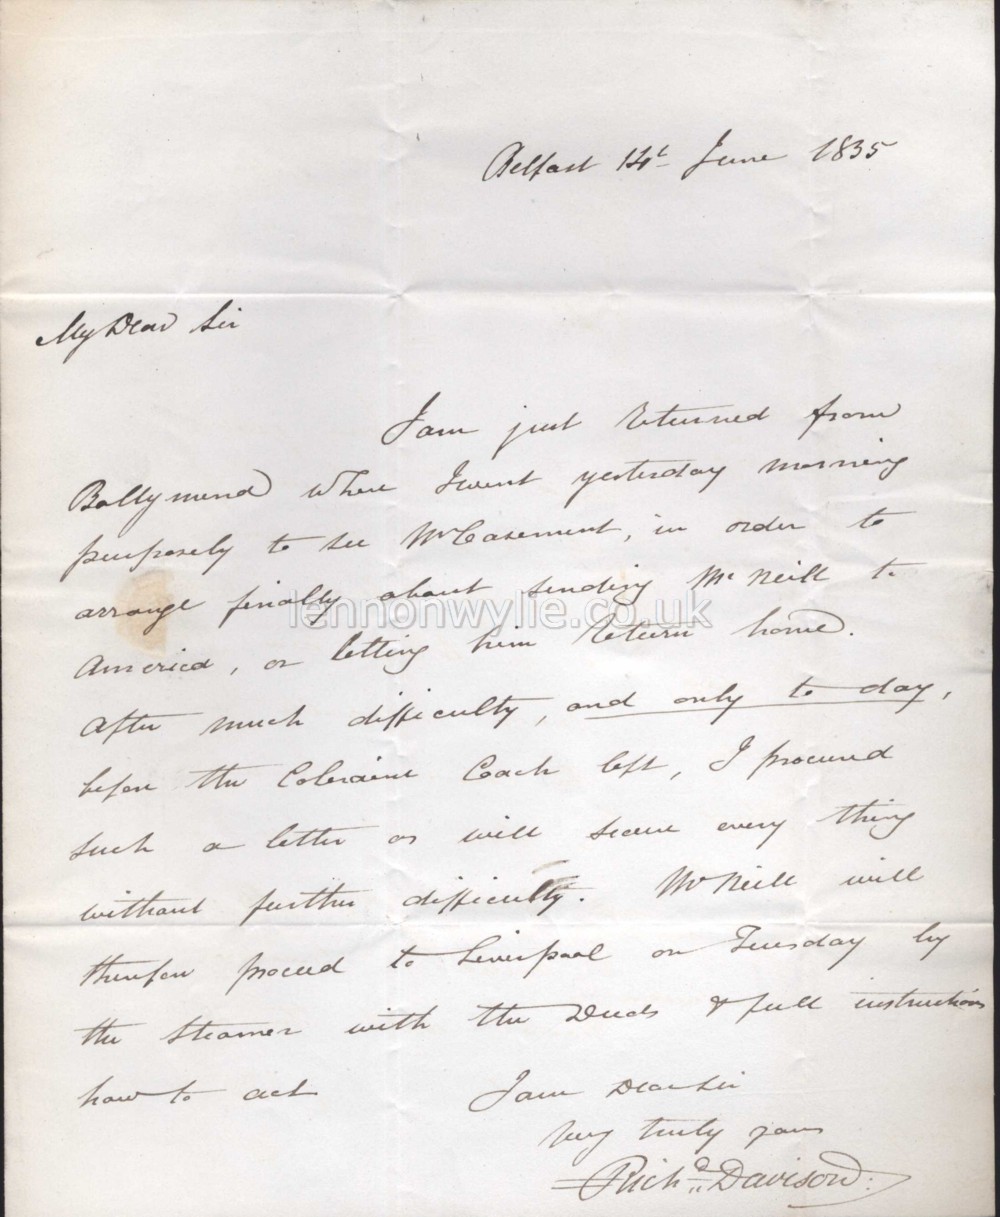 Belfast 14t June 1835
My Dear Sir
I am just returned from
Ballymena where I went yesterday morning
purposely to see Mr Casement, in order to
arrange finally about sending McNeill to
lennonwylie.co.uk
America, or letting him return home.
After much difficulty, and only to day,
before the Coleraine Coach left, I procured
such a letter as will secure every thing
without further difficulty. McNeill will
therefore proceed to Liverpool on Tuesday by
the Steamer with the Deeds & full instructions
how to act
I am Dear Sir
Very truly yours
Richd Davison